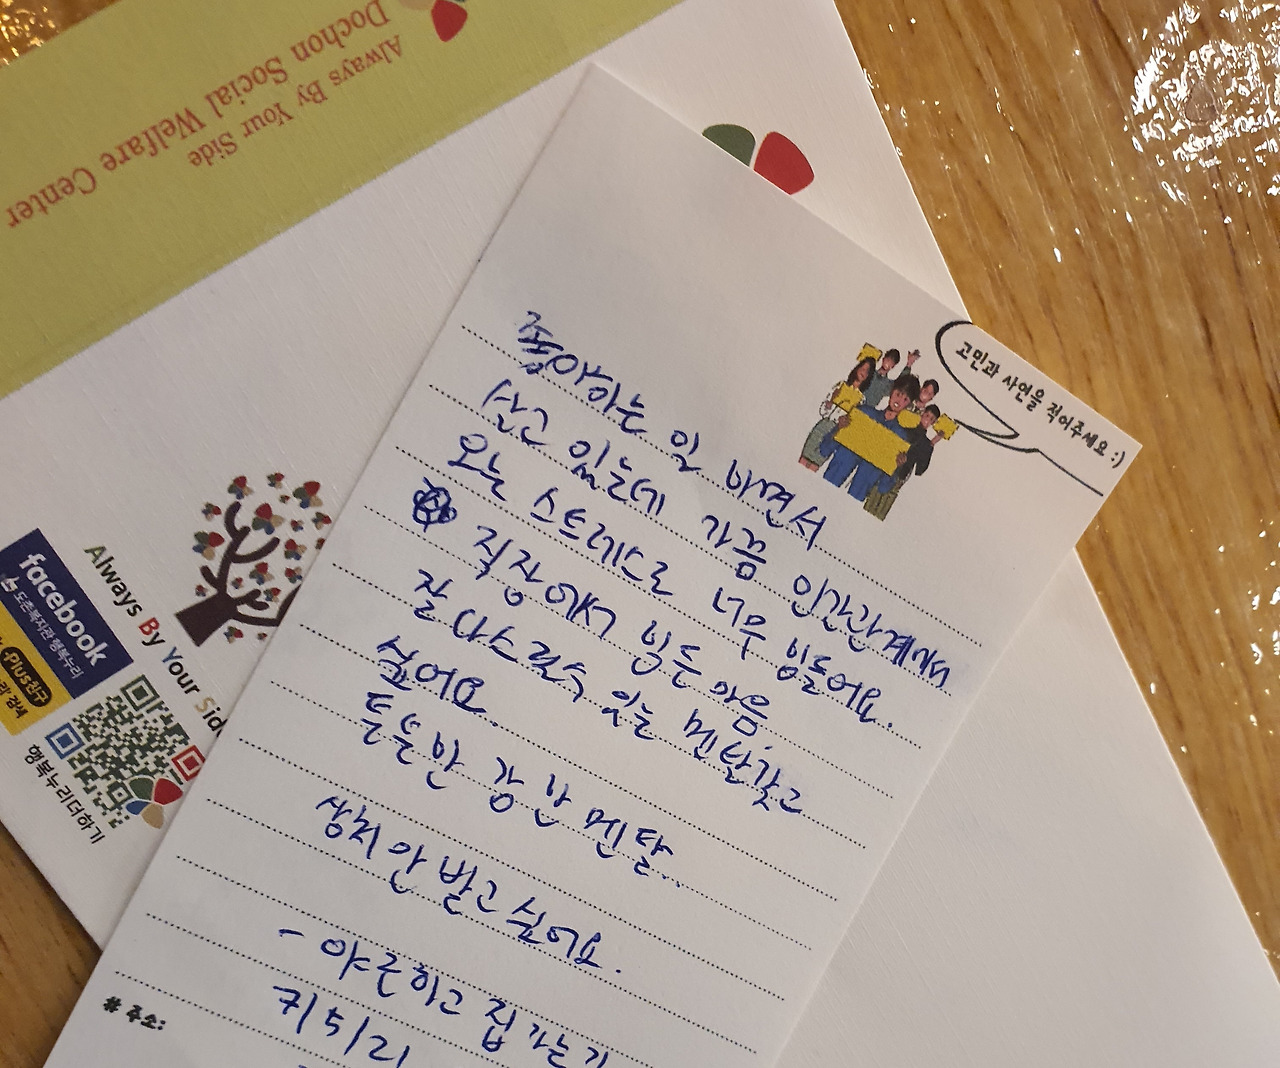 Always By Your Side
Dochon Social Welfare Center
고민과 사연을 적어주세요 :)
좋아하는 일 하면서
살고 있는데 가끔 인간관계에서
오는 스트레스로 너무 힘들어요.
직장에서 힘든 마음,
잘 다스릴 수 있는 멘탈 갖고
싶어요..
튼튼한 강한 멘탈..
상처 안 받고 싶어요.
- 야근하고 집 가는 길
# 주소:
facebook
도촌복지관 행복누리
Plus친구
검색
Always By Your Sid
행복누리더하기